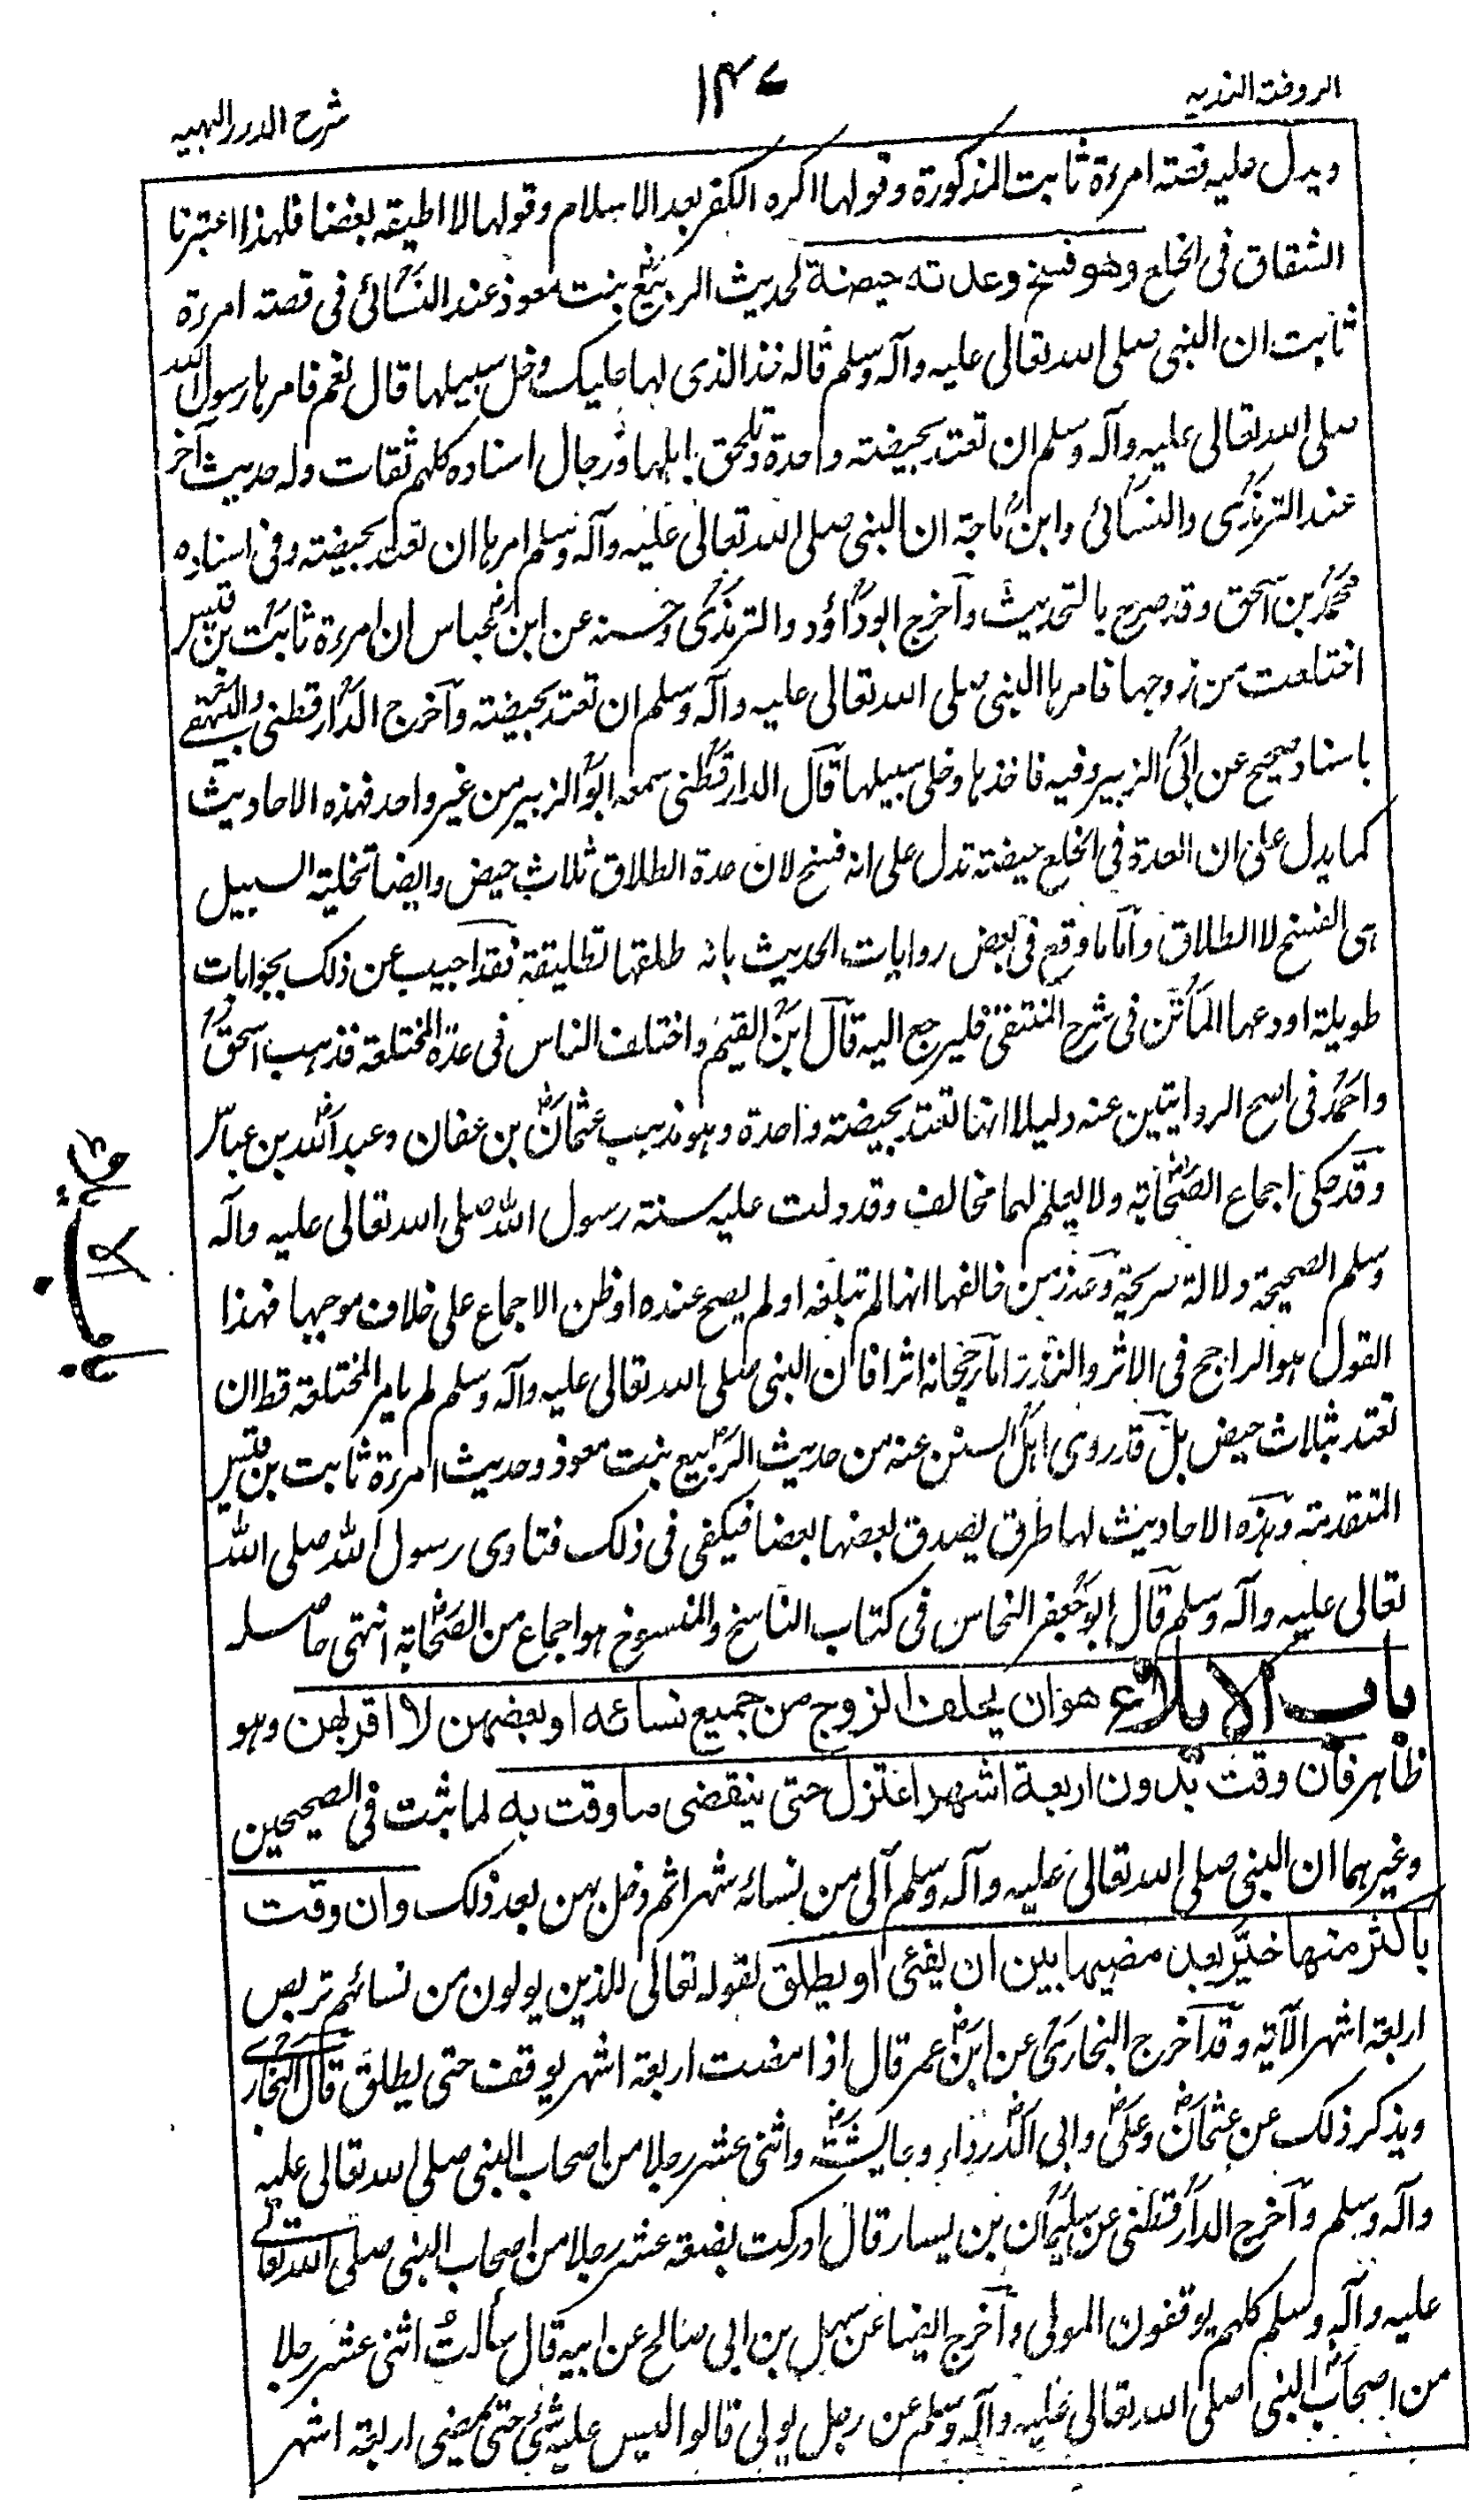 الروضة الندیہ
۱۴۷
شرح الدرر البہیہ
ویدل علیہ قصتہ امرءۃ ثابت المذکورۃ وقولہا اکرہ الکفر بعد الاسلام وقولہا لا اطیقہ بغضا فلہذا اعتبرنا
الشقاق فی الخلع وھو فسخ وعدتہ حیضۃ لحدیث الربیع بنت معوذ عند النسائی فی قصتہ امرءۃ
ثابت ان النبی صلی اللہ تعالی علیہ وآلہ وسلم قال لہ خذ الذی لہا علیک وخل سبیلہا قال نعم فامرہا رسول اللہ
صلی اللہ تعالی علیہ وآلہ وسلم ان تعتد بحیضتہ واحدۃ وتلحق باہلہا ورجال اسنادہ کلہم ثقات ولہ حدیث آخر
عند الترمذی والنسائی وابن ماجۃ ان النبی صلی اللہ تعالی علیہ وآلہ وسلم امرہا ان تعتد بحیضتہ وفی اسنادہ
محمد بن اسحق وقد صرح بالتحدیث وآخرج ابوداؤد والترمذی وحسنہ عن ابن عباس ان امرءۃ ثابت بن قیس
اختلعت من زوجہا فامرہا النبی صلی اللہ تعالی علیہ وآلہ وسلم ان تعتد بحیضتہ وآخرج الدارقطنی والبیہقے
باسناد صحیح عن ابی الزبیر وفیہ فاخذہا وخلی سبیلہا قال الدارقطنی سمعہ ابو الزبیر من غیر واحد فہذہ الاحادیث
کما یدل علی ان العدۃ فی الخلع حیضتہ تدل علی انہ فسخ لان عدۃ الطلاق ثلاث حیض وایضا تخلیتہ السبیل
ہی الفسخ لا الطلاق وآما ما وقع فی بعض روایات الحدیث بانہ طلقہا تطلیقۃ فقد اجیب عن ذلک بجوابات
طویلۃ اودعہا الماتن فی شرح المنتقی فلیرجع الیہ قال ابن القیم واختلف الناس فی عدۃ المختلعۃ فذہب اسحق
واحمد فی اصح الروایتین عنہ دلیلا انہا تعتد بحیضتہ واحدۃ وہو مذہب عثمان بن عفان وعبد اللہ بن عباس
وقد حکی اجماع الصحابۃ ولا یعلم لہما مخالف وقد دلت علیہ سنتہ رسول اللہ صلی اللہ تعالی علیہ وآلہ
وسلم الصحیحۃ دلالۃ صریحۃ وعذر من خالفہا انہا لم تبلغہ او لم یصح عندہ او ظن الاجماع علی خلاف موجبہا فہذا
القول ہو الراجح فی الاثر والنظر اما رجحانہ اثرا فان النبی صلی اللہ تعالی علیہ وآلہ وسلم لم یامر المختلعۃ قط ان
تعتد بثلاث حیض بل قد روی اہل السنن عنہ من حدیث الربیع بنت معوذ وحدیث امرءۃ ثابت بن قیس
المتقدمتہ وہذہ الاحادیث لہا طرق یصدق بعضہا بعضا فیکفی فی ذلک فتاوی رسول اللہ صلی اللہ
تعالی علیہ وآلہ وسلم قال ابو جعفر النحاس فی کتاب الناسخ والمنسوخ ہو اجماع من الصحابۃ انتہی حاصلہ
باب الایلاء ھو ان یحلف الزوج من جمیع نسائہ او بعضہن لا اقربھن وہو
ظاہر فان وقت بدون اربعۃ اشھر اعتزل حتی ینقضی ما وقت بہ لما ثبت فی الصحیحین
وغیرہما ان النبی صلی اللہ تعالی علیہ وآلہ وسلم آلی من نسائہ شہرا ثم دخل بہن بعد ذلک وان وقت
باکثر منھا خیّر بعد مضیہا بین ان یفئی او یطلق لقولہ تعالی للذین یولون من نسائہم تربص
اربعۃ اشہر الآیۃ وقد آخرج البخاری عن ابن عمر قال اذا مضت اربعۃ اشہر یوقف حتی یطلق قال البخارے
ویذکر ذلک عن عثمان وعلی وابی الدرداء وعایشۃ واثنی عشر رجلا من اصحاب النبی صلی اللہ تعالی علیہ
وآلہ وسلم وآخرج الدارقطنی عن سلیمان بن یسار قال ادرکت بضعۃ عشر رجلا من اصحاب النبی صلی اللہ تعالے
علیہ وآلہ وسلم کلہم یوقفون المولی وآخرج ایضا عن سہیل بن ابی صالح عن ابیہ قال سألت اثنی عشر رجلا
من اصحاب النبی صلی اللہ تعالی علیہ وآلہ وسلم عن رجل یولی قالوا لیس علیہ شئ حتی تمضی اربعۃ اشہر
باب الایلاء